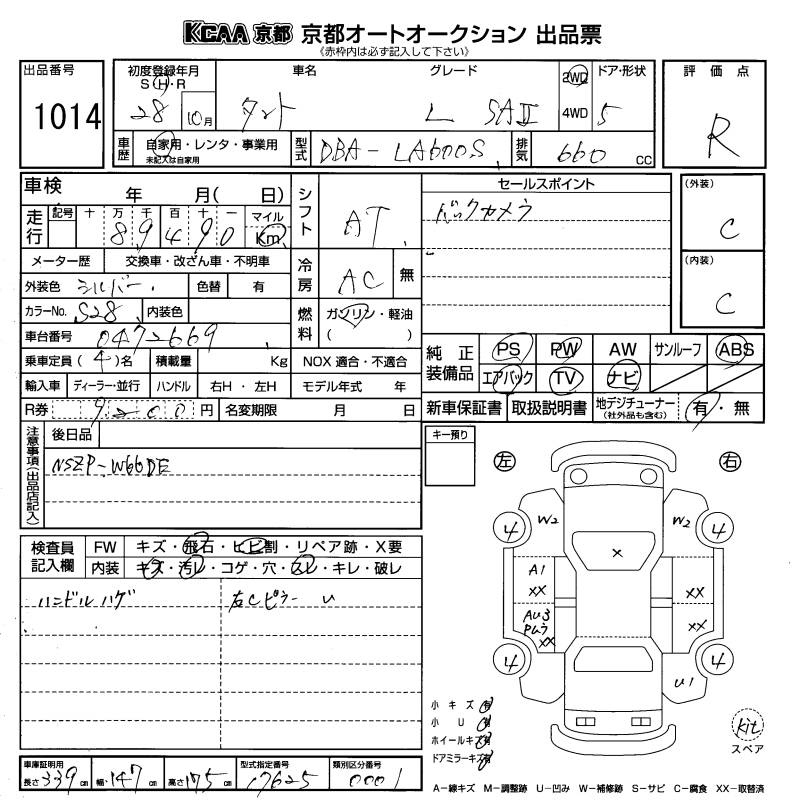 KCAA 京都 京都オートオークション 出品票
《赤枠内は必ず記入して下さい》
出品番号 1014
初度登録年月 S・H・R 28 10月
車名 タント
グレード L SAⅡ
2WD 4WD
ドア・形状 5
評価点 R
車歴 自家用・レンタ・事業用
未記入は自家用
型式 DBA-LA600S
排気 660 CC
車検 年 月( 日)
シフト AT
セールスポイント
バックカメラ
(外装) C
(内装) C
走行 記号 十 万 千 百 十 一 マイル Km
8 9 4 9 0
メーター歴 交換車・改ざん車・不明車
冷房 AC 無
外装色 シルバー 色替 有
カラーNo. S28 内装色
燃料 ガソリン・軽油 ( )
車台番号 0472669
乗車定員 (4)名 積載量 Kg NOX 適合・不適合
純正装備品 PS PW AW サンルーフ ABS
エアバック TV ナビ
輸入車 ディーラー・並行 ハンドル 右H・左H モデル年式 年
R券 9200円 名変期限 月 日
新車保証書 取扱説明書 地デジチューナー (社外品も含む) 有・無
注意事項(出品店記入)
後日品
NSZP-W66DE
キー預り
左 右
検査員記入欄
FW キズ・飛石・ヒビ割・リペア跡・X要
内装 キズ・汚レ・コゲ・穴・スレ・キレ・破レ
ハンドルハゲ 右Cピラー U
4 W2 W2 4
X
A1
XX XX
AU3
PMウ
XX XX
4 4
U1
小キズ 有
小U 有
ホイールキズ 有
ドアミラーキズ 有
kit
スペア
車庫証明用 長さ 339 cm 幅 147 cm 高さ 175 cm
型式指定番号 17625
類別区分番号 0001
A-線キズ M-調整跡 U-凹み W-補修跡 S-サビ C-腐食 XX-取替済